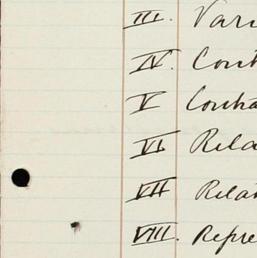 III. Vari
IV. Cont
V Contra
VI Rela
VII Relat
VIII. Repre